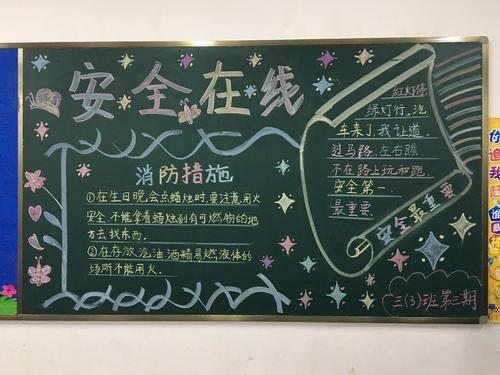 安全在线
消防措施
①在生日晚会点蜡烛时,要注意用火
安全,不能拿着蜡烛到有可燃物的地
方去找东西.
②在存放汽油、酒精易燃液体的
场所不能用火.
红灯停
绿灯行,汽
车来了,我让道.
过马路,左右瞧
不在路上玩和跑.
安全第一
最重要.
安全最重要
三(3)班第三期
你
我